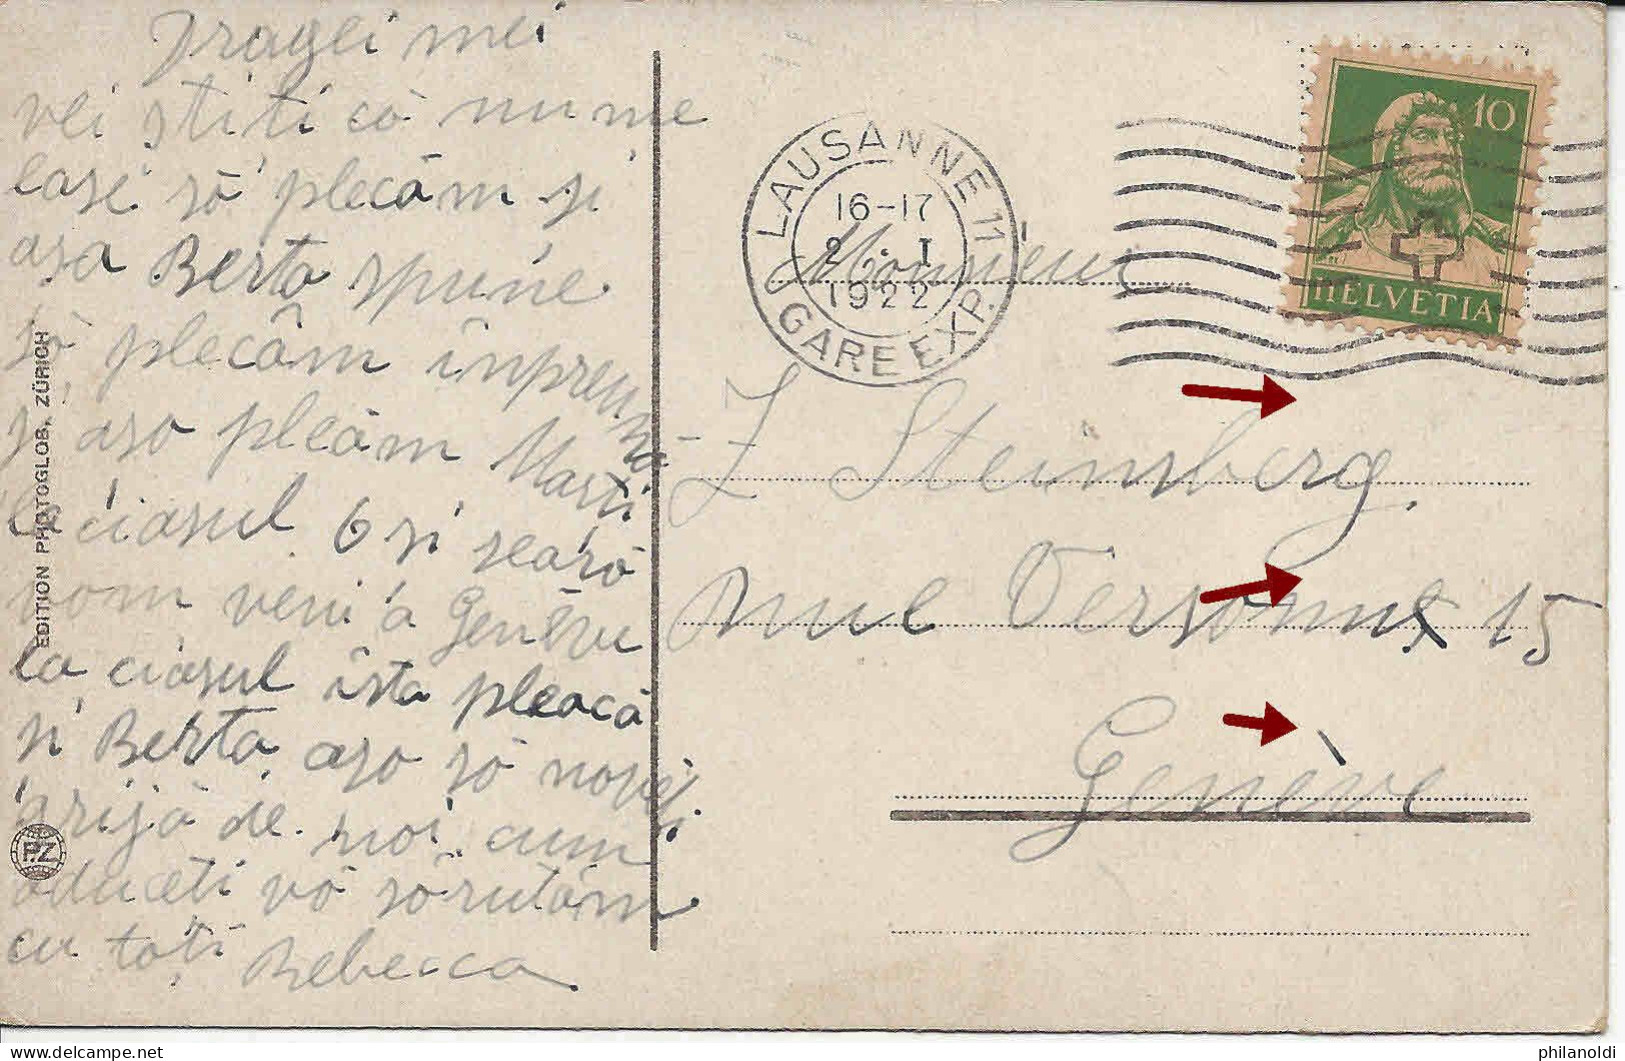 Dragei mei
vei știti cô nu ne
lasi sô plecâm și
așa Berta spune
sô plecâm înpreună
și aso plecâm Marti
la ciasul 6 și searô
vom veni a Genève
la ciasul ista pleacă
și Berta, aso sô
grijâ de noi cum
aduceti vô sôrutâm
cu toți Rebecca
EDITION PHOTOGLOB, ZÜRICH
PZ
LAUSANNE 11
16-17
2.I
1922
GARE EXP.
10
HELVETIA
Monsieur
Z Steinsberg.
rue Versonnex 15
Genève
philanoldi